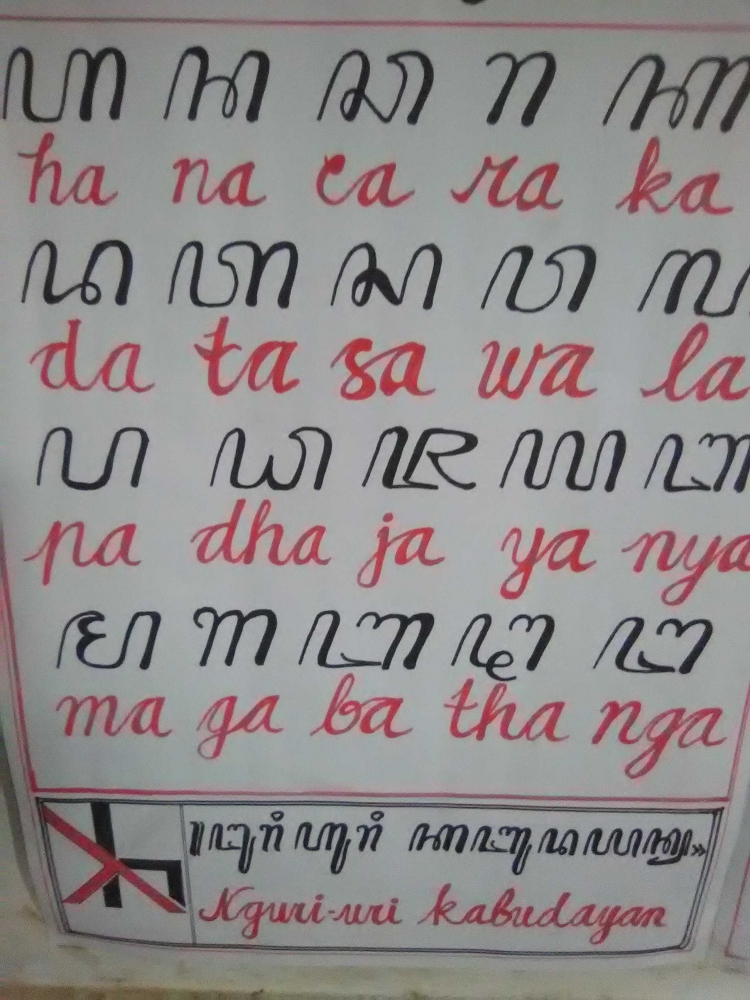 ꦲ ꦤ ꦕ ꦫ ꦏ
ha na ca ra ka
ꦢ ꦠ ꦱ ꦮ ꦭ
da ta sa wa la
ꦥ ꦝ ꦗ ꦪ ꦚ
pa dha ja ya nya
ꦩ ꦒ ꦧ ꦛ ꦔ
ma ga ba tha nga
ꦔꦸꦫꦶꦲꦸꦫꦶ ꦏꦧꦸꦢꦪꦤ꧀
Nguri-uri kabudayan